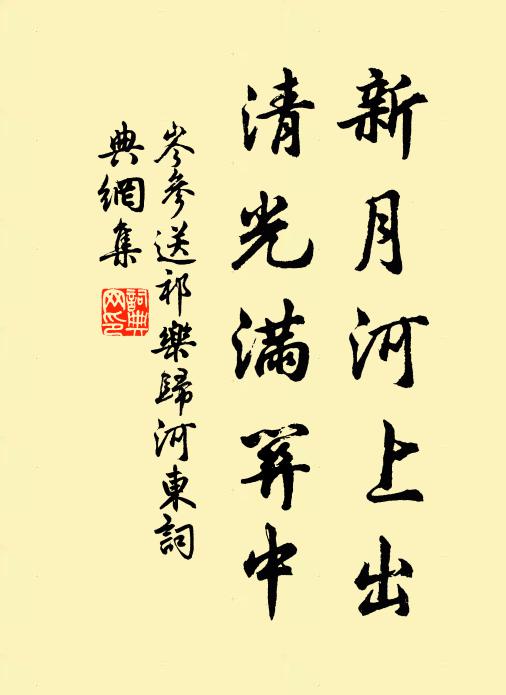 新月河上出
清光滿關中
岑參送祁樂歸河東詞
典網集
詞典
网印